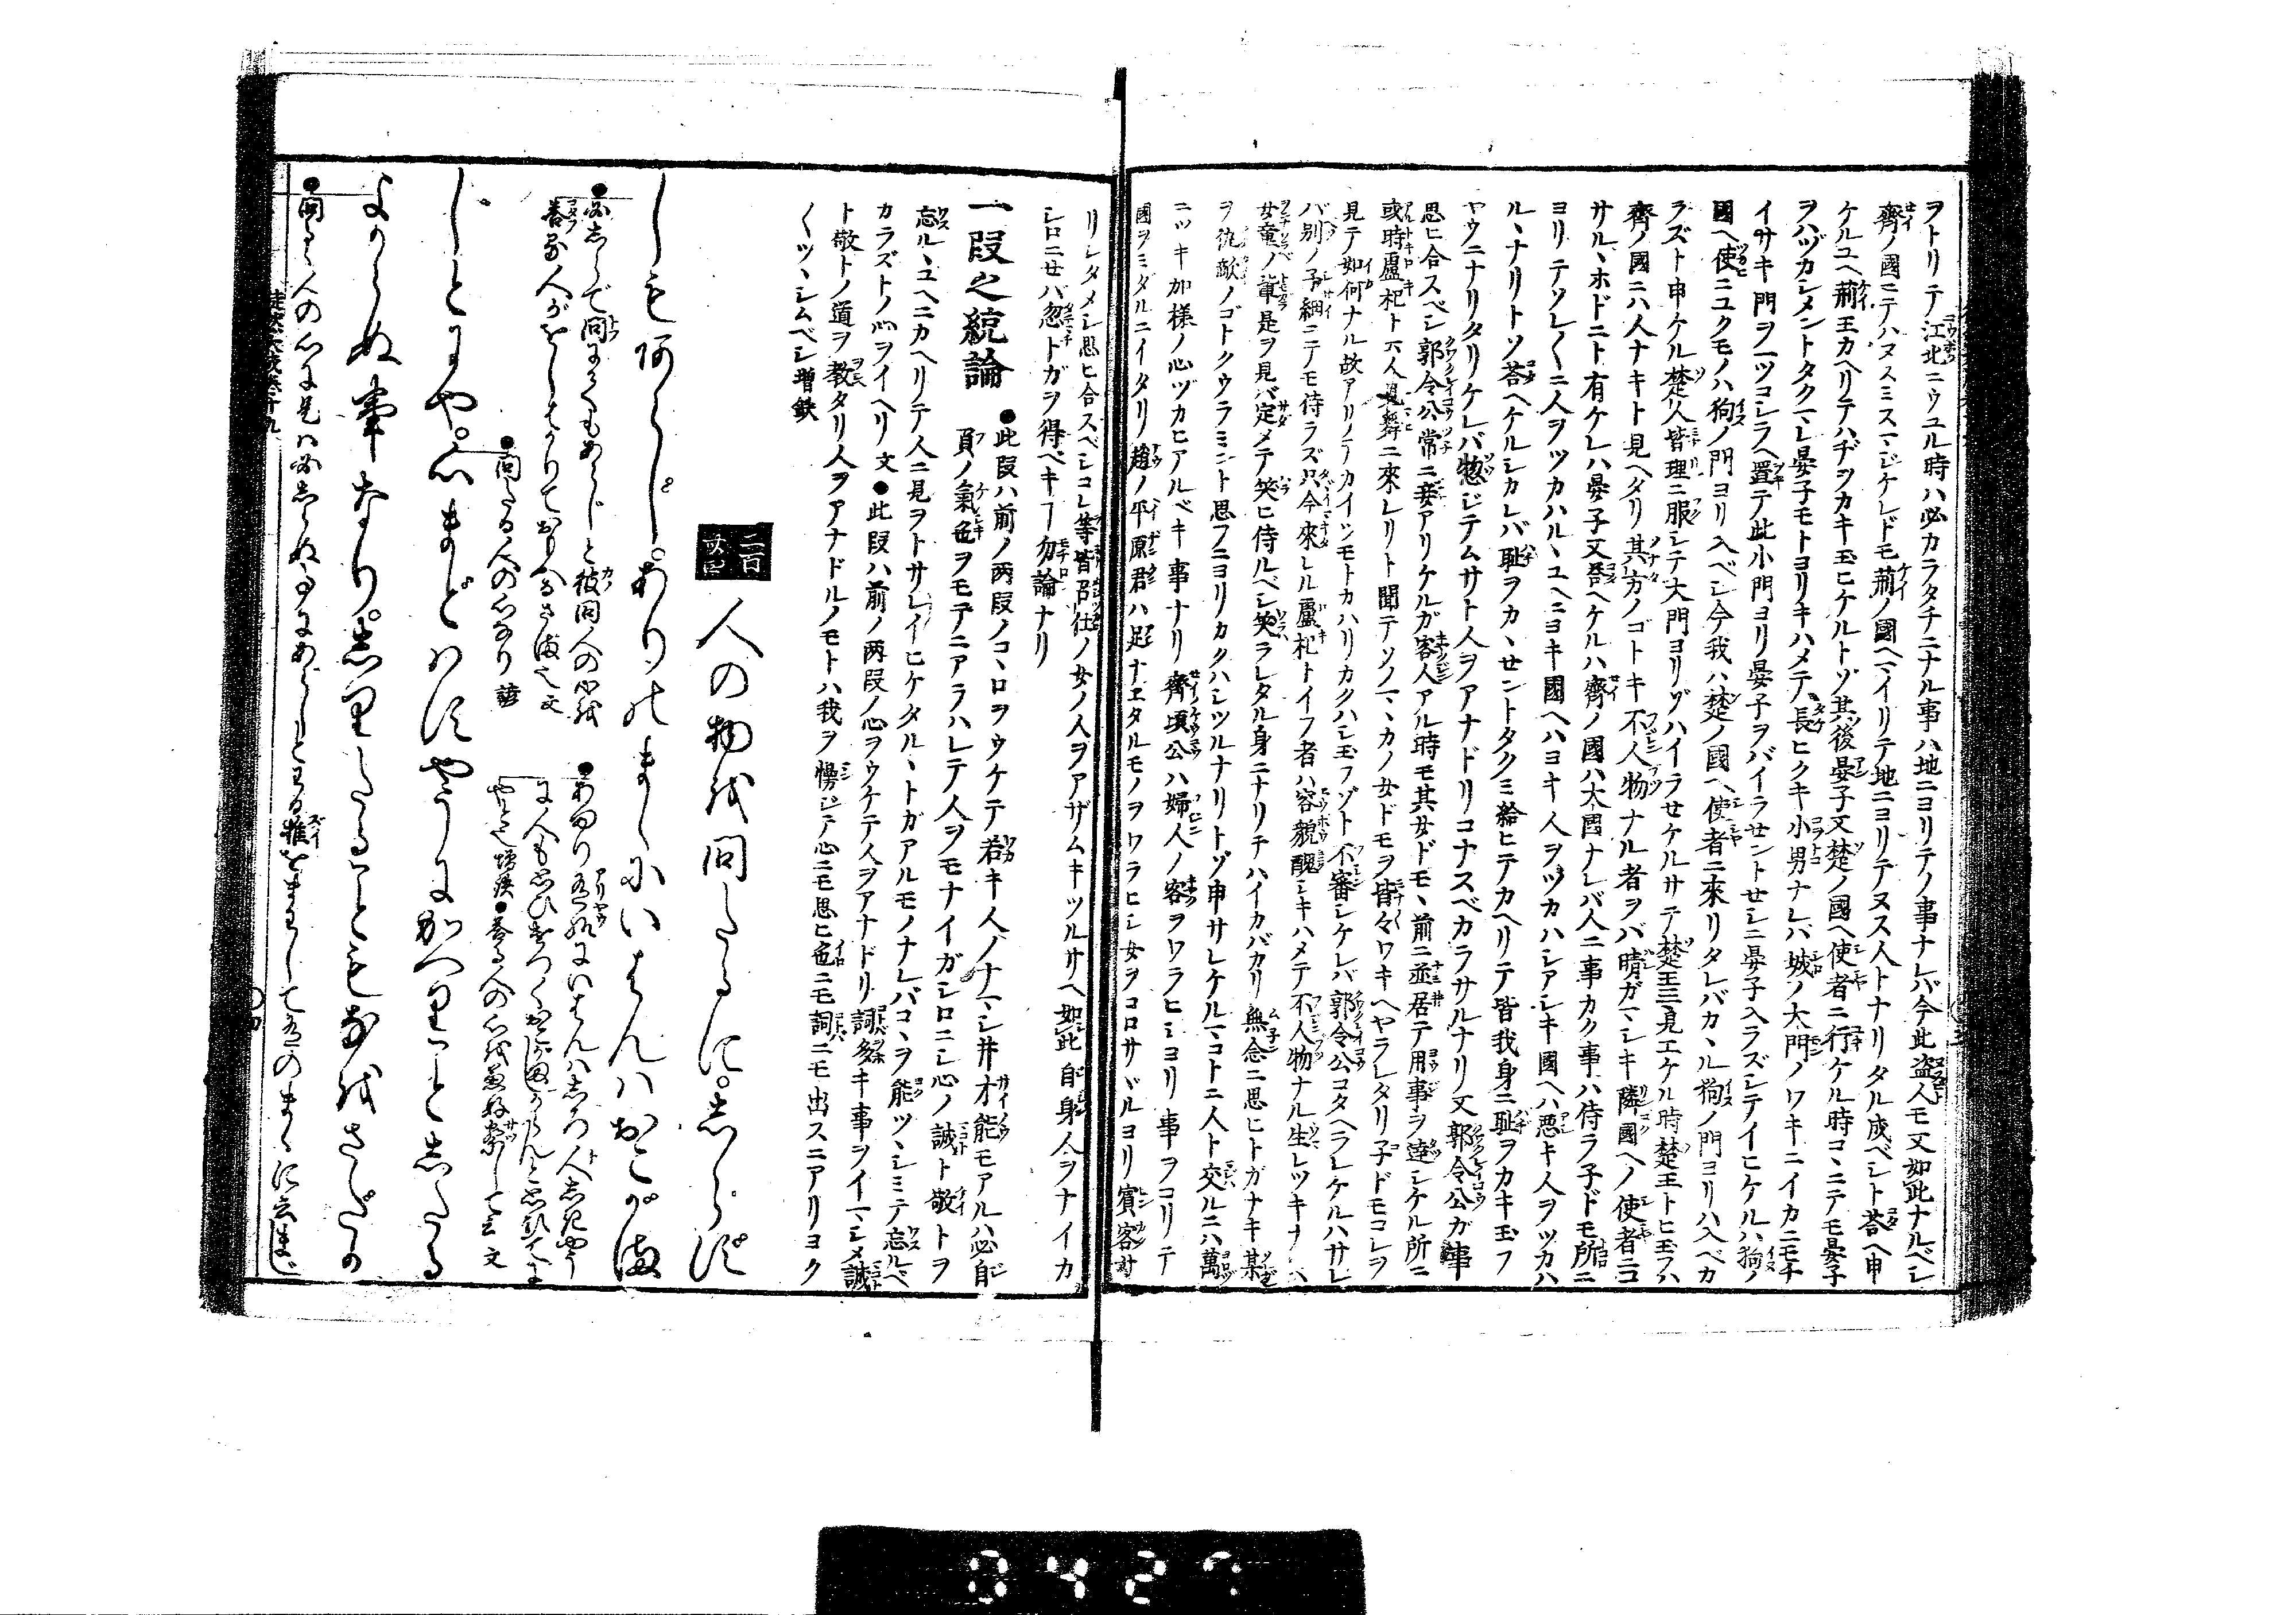 ヲトリテ江北ニウユル時ハ必カラタチニナル事ハ地ニヨリテノ事ナレバ今此盗人モ又如此ナルベシ
齊ノ國ニテハヌスミスマジケレドモ荊ノ國ヘマイリテ地ニヨリテヌス人トナリタル成ベシト荅ヘ申
ケルユヘ荊王カヘリテハヂヲカキ玉ヒケルトゾ其後晏子又楚ノ國ヘ使者ニ行ケル時コヽニテモ晏子
ヲハヅカシメントタクマレ晏子モトヨリキハメテ長ヒクキ小男ナレバ城ノ大門ノワキニイカニモチ
イサキ門ヲ一ツコシラヘ置テ此小門ヨリ晏子ヲバイラセントセシニ晏子入ラズシテイヒケルハ狗ノ
國ヘ使ニユクモノハ狗ノ門ヨリ入ベシ今我ハ楚ノ國ヘ使者ニ來リタレバカヽル狗ノ門ヨリハ入ベカ
ラズト申ケル楚人皆理ニ服シテ大門ヨリゾハイラセケルサテ楚王ニ見エケル時楚王トヒ玉フハ
齊ノ國ニハ人ナキト見ヘタリ其方ノゴトキ不人物ナル者ヲバ晴ガマシキ隣國ヘノ使者ニコ
サルヽホドニト有ケレハ晏子又荅ヘケルハ齊ノ國ハ大國ナレバ人ニ事カク事ハ侍ラ子ドモ所ニ
ヨリテソレ〱ニ人ヲツカハルヽユヘニヨキ國ヘハヨキ人ヲツカハシアシキ國ヘハ悪キ人ヲツカハ
ルヽナリトソ荅ヘケルシカレバ耻ヲカヽセントタクミ給ヒテカヘリテ皆我身ニ耻ヲカキ玉フ
ヤウニナリタリケレバ惣ジテムサト人ヲアナドリコナスベカラサルナリ又郭令公ガ事
思ヒ合スベシ郭令公常ニ妾アリケルガ客人アル時モ其女ドモヽ前ニ並居テ用事ヲ達シケル所ニ
或時盧杞ト云人見舞ニ來レリト聞テソノマヽカノ女ドモヲ皆々ワキヘヤラレタリ子ドモコレヲ
見テ如何ナル故アリテカイツモトカハリカクハシ玉フゾト不審シケレバ郭令公コタヘラレケルハサレ
バ別ノ子細ニテモ侍ラズ只今來レル盧杞トイフ者ハ容貌醜シキハメテ不人物ナル生レツキナレハ
女童ノ輩是ヲ見バ定メテ笑ヒ侍ルベシ笑ラレタル身ニナリテハイカバカリ無念ニ思ヒトガナキ某
ヲ仇敵ノゴトクウラミント思フニヨリカクハシツルナリトゾ申サレケルマコトニ人ト交ルニハ萬
ニツキ加様ノ心ヅカヒアルベキ事ナリ齊頃公ハ婦人ノ客ヲワラヒシヨリ事ヲコリテ
國ヲミダルニイタリ趙ノ平原君ハ足ナエタルモノヲワラヒシ女ヲコロサヾルヨリ賓客討
リシタメシ思ヒ合スベシコレ等皆召仕ノ女ノ人ヲアザムキツルサヘ如此自身人ヲナイカ
シロニセハ忽トガヲ得ベキヿ勿論ナリ
一段之統論
●此段ハ前ノ两段ノコヽロヲウケテ若キ人ノナマシ井才能モアルハ必自
負ノ氣色ヲモテニアラハレテ人ヲモナイガシロニシ心ノ誠ト敬トヲ
忘ルヽユヘニカヘリテ人ニ見ヲトサレイヒケタルヽトガアルモノナレバコヽヲ能ツヽシミテ忘ルベ
カラズトノ心ヲイヘリ文●此段ハ前ノ两段ノ心ヲウケテ人ヲアナドリ詞多キ事ヲイマシメ誠
ト敬トノ道ヲ教タリ人ヲアナドルノモトハ我ヲ慢ジテ心ニモ思ヒ色ニモ詞ニモ出スニアリヨク
〱ツヽシムベシ増鉄
二百卅四
人の物を問たるに。しらず
しもあらじ。ありのまゝにいはんはおこがま
●必しらで問にてもあらじと彼問人の心を
荅る人がをしはかりて
●ありのまゝにいはんハ
●問たる人の心なり諺
●荅る人の心を
じとにや。心まどはすやうにかへりごとしたる
よからぬ事なり。しりたることもなをさだか
●問より人の心に見ハ必しらぬ事にあらじと